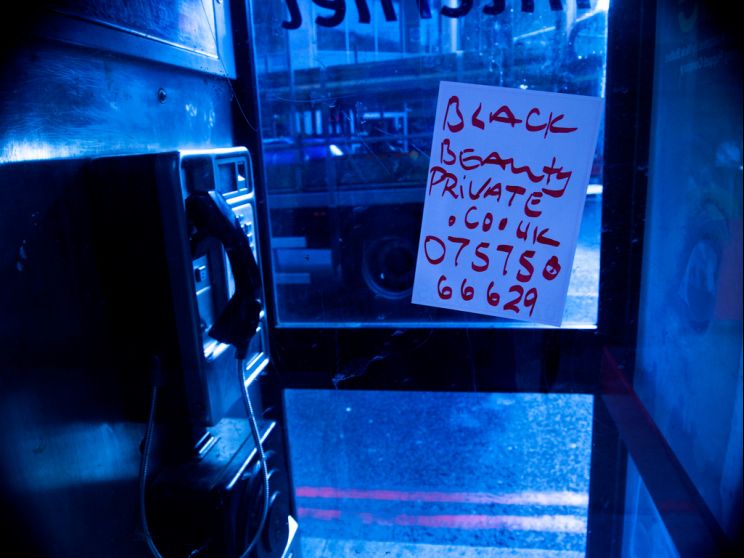 BLACK
BEAuty
PRiVATE
.CO.UK
075750
66629